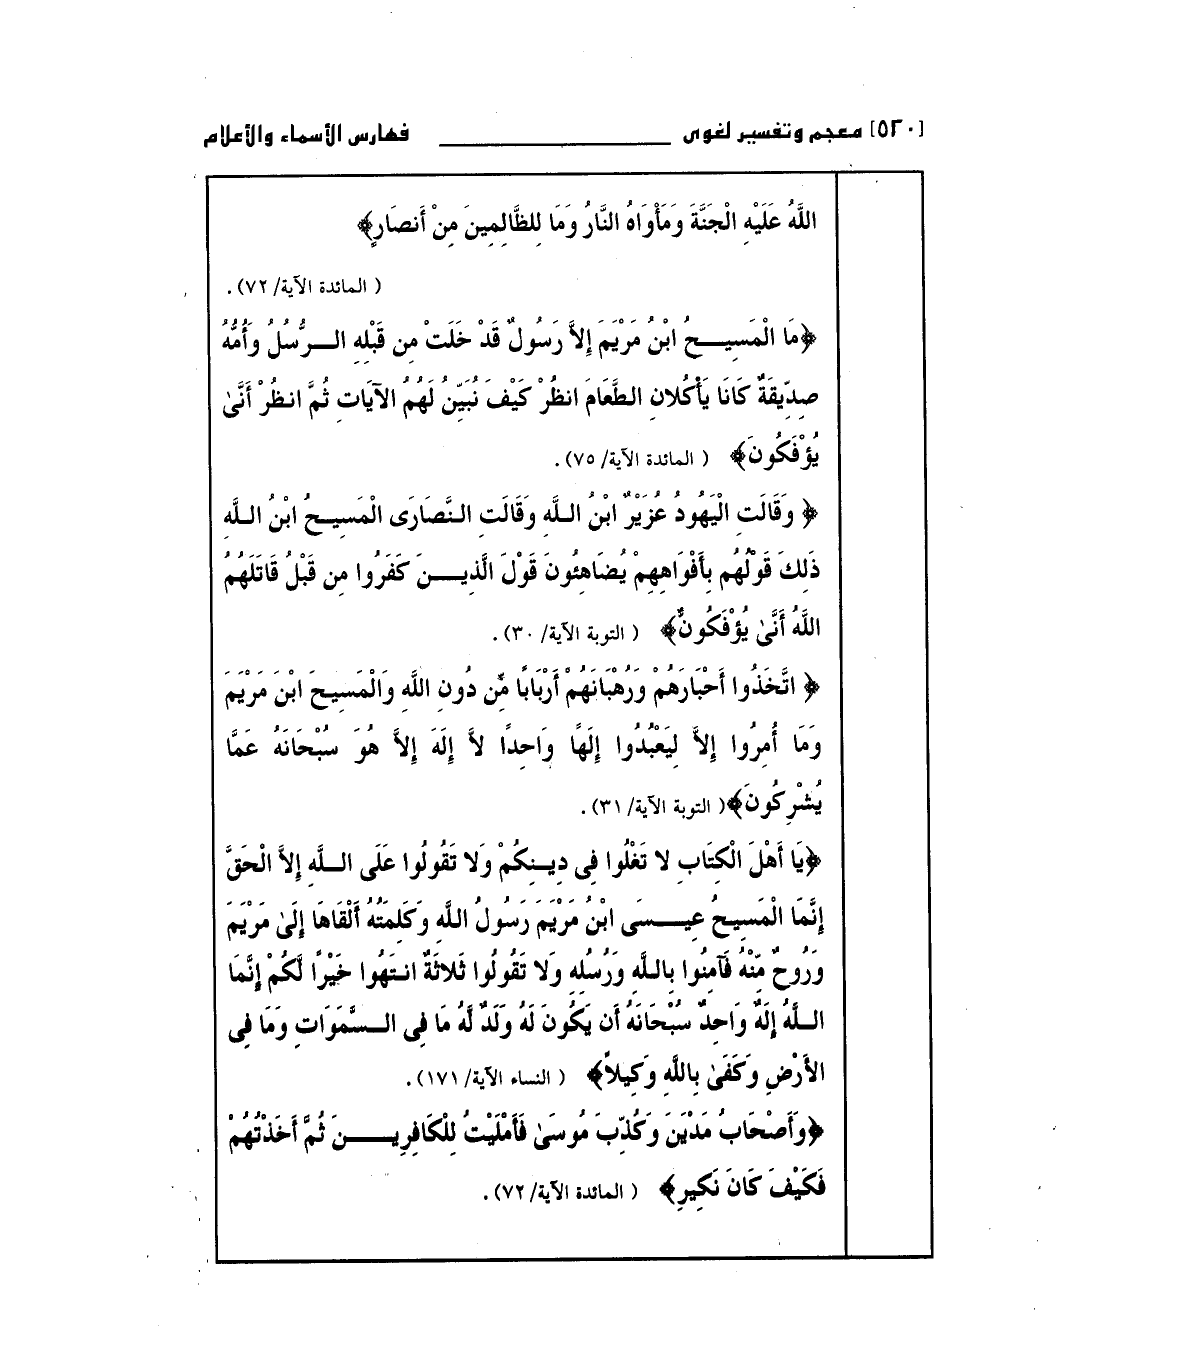 [٥٢٠] معجم وتفسير لغوى ــــــــــــــــ فهارس الأسماء والأعلام
اللَّهُ عَلَيْهِ الْجَنَّةَ وَمَأْوَاهُ النَّارُ وَمَا لِلظَّالِمِينَ مِنْ أَنصَارٍ﴾
( المائدة الآية/ ٧٢).
﴿مَا الْمَسِيحُ ابْنُ مَرْيَمَ إِلاَّ رَسُولٌ قَدْ خَلَتْ مِن قَبْلِهِ الرُّسُلُ وَأُمُّهُ
صِدِّيقَةٌ كَانَا يَأْكُلانِ الطَّعَامَ انظُرْ كَيْفَ نُبَيِّنُ لَهُمُ الآيَاتِ ثُمَّ انظُرْ أَنَّىٰ
يُؤْفَكُونَ﴾ ( المائدة الآية/ ٧٥).
﴿ وَقَالَتِ الْيَهُودُ عُزَيْرٌ ابْنُ اللَّهِ وَقَالَتِ النَّصَارَى الْمَسِيحُ ابْنُ اللَّهِ
ذَلِكَ قَوْلُهُم بِأَفْوَاهِهِمْ يُضَاهِئُونَ قَوْلَ الَّذِينَ كَفَرُوا مِن قَبْلُ قَاتَلَهُمُ
اللَّهُ أَنَّىٰ يُؤْفَكُونَ﴾ ( التوبة الآية/ ٣٠).
﴿ اتَّخَذُوا أَحْبَارَهُمْ وَرُهْبَانَهُمْ أَرْبَابًا مِّن دُونِ اللَّهِ وَالْمَسِيحَ ابْنَ مَرْيَمَ
وَمَا أُمِرُوا إِلاَّ لِيَعْبُدُوا إِلَهًا وَاحِدًا لاَّ إِلَهَ إِلاَّ هُوَ سُبْحَانَهُ عَمَّا
يُشْرِكُونَ﴾( التوبة الآية/ ٣١).
﴿يَا أَهْلَ الْكِتَابِ لا تَغْلُوا فِى دِينِكُمْ وَلا تَقُولُوا عَلَى اللَّهِ إِلاَّ الْحَقَّ
إِنَّمَا الْمَسِيحُ عِيسَى ابْنُ مَرْيَمَ رَسُولُ اللَّهِ وَكَلِمَتُهُ أَلْقَاهَا إِلَىٰ مَرْيَمَ
وَرُوحٌ مِّنْهُ فَآمِنُوا بِاللَّهِ وَرُسُلِهِ وَلا تَقُولُوا ثَلاثَةٌ انتَهُوا خَيْرًا لَّكُمْ إِنَّمَا
اللَّهُ إِلَهٌ وَاحِدٌ سُبْحَانَهُ أَن يَكُونَ لَهُ وَلَدٌ لَّهُ مَا فِى السَّمَوَاتِ وَمَا فِى
الأَرْضِ وَكَفَىٰ بِاللَّهِ وَكِيلاً﴾ ( النساء الآية/ ١٧١).
﴿وَأَصْحَابُ مَدْيَنَ وَكُذِّبَ مُوسَىٰ فَأَمْلَيْتُ لِلْكَافِرِينَ ثُمَّ أَخَذْتُهُمْ
فَكَيْفَ كَانَ نَكِيرِ﴾ ( المائدة الآية/ ٧٢).